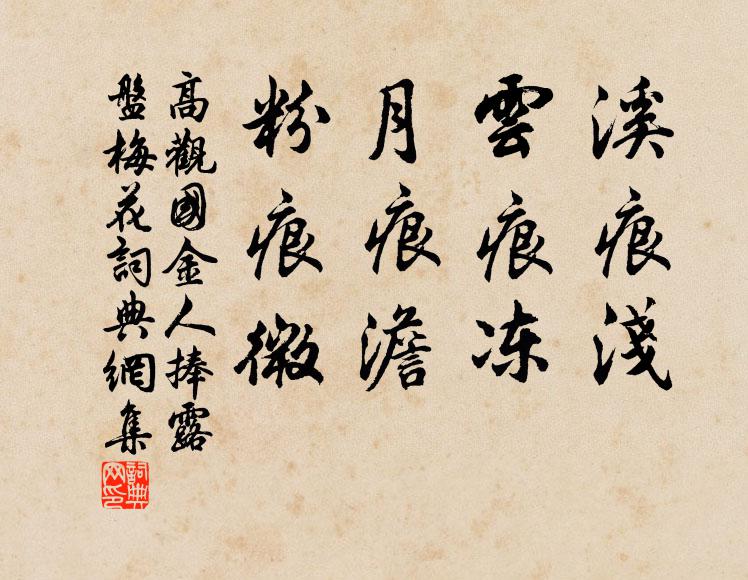 溪痕淺
雲痕冻
月痕澹
粉痕微
高觀國金人捧露
盤梅花詞典網集
詞典网印